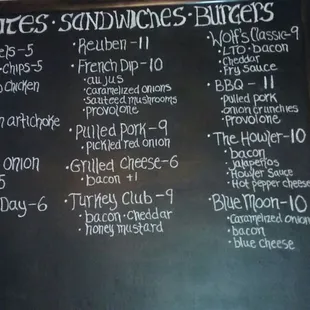 ITES · SANDWICHES · BURGERS
els-5
chips-5
chicken
n artichoke
onion
5
Day-6
· Reuben-11
· French Dip-10
· au jus
· caramelized onions
· sauteed mushrooms
· provolone
· Pulled Pork-9
· pickled red onion
· Grilled Cheese-6
· bacon +1
· Turkey Club-9
· bacon · cheddar
· honey mustard
· Wolf's Classic-9
· LTO · bacon
· cheddar
· fry sauce
· BBQ - 11
· pulled pork
· onion crunchies
· provolone
· The Howler-10
· bacon
· jalapeños
· Howler Sauce
· Hot pepper cheese
· Blue Moon-10
· Caramelized onion
· bacon
· blue cheese